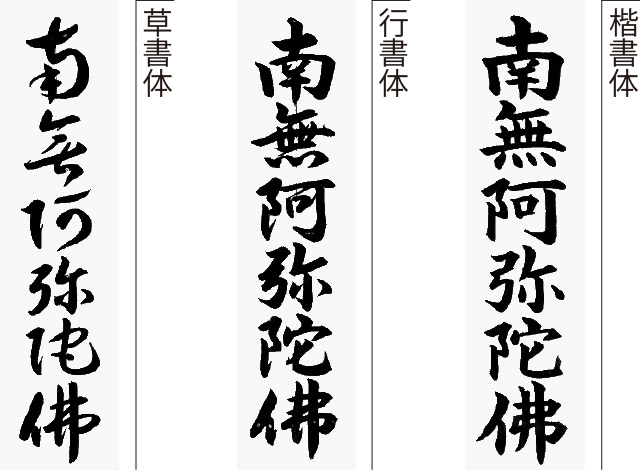 楷書体
南無阿弥陀佛
行書体
南無阿弥陀佛
草書体
南無阿弥陀佛